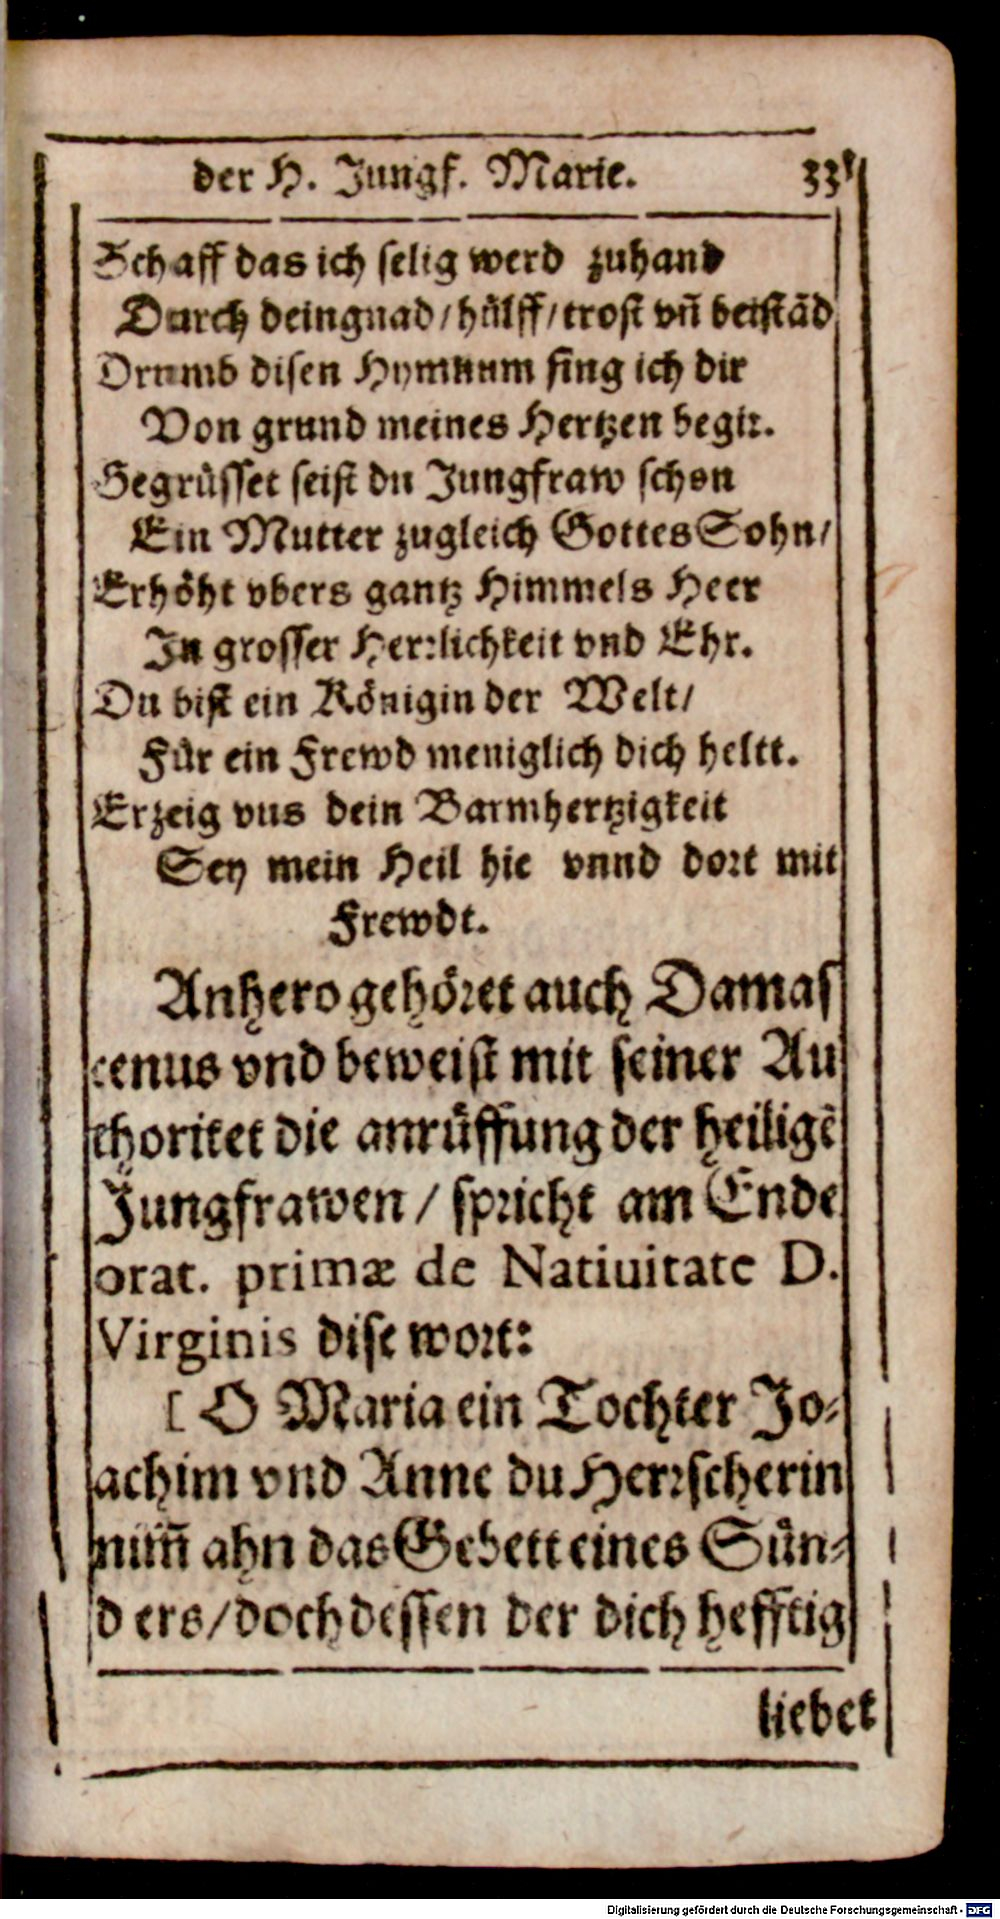 der H. Jungf. Marie. 331
Schaff das ich selig werd zuhand
Durch dein gnad / hülff / trost vn̄ beistād
Drumb disen Hymnum sing ich dir
Von grund meines Hertzen begir.
Gegrüsset seist du Jungfraw schon
Ein Mutter zugleich Gottes Sohn /
Erhöht vbers gantz Himmels Heer
In grosser Herrlichkeit vnd Ehr.
Du bist ein Königin der Welt /
Für ein Frewd meniglich dich heltt.
Erzeig vns dein Barmhertzigkeit
Sey mein Heil hie vnnd dort mit
Frewdt.
Anhero gehöret auch Damas
cenus vnd beweist mit seiner Au
thoritet die anrüffung der heiligē
Jungfrawen / spricht am Ende
orat. primæ de Natiuitate D.
Virginis dise wort:
[ O Maria ein Tochter Jo-
achim vnd Anne du Herrscherin
nim̄ ahn das Gebett eines Sün-
ders / doch dessen der dich hefftig
liebet
Digitalisierung gefördert durch die Deutsche Forschungsgemeinschaft - DFG